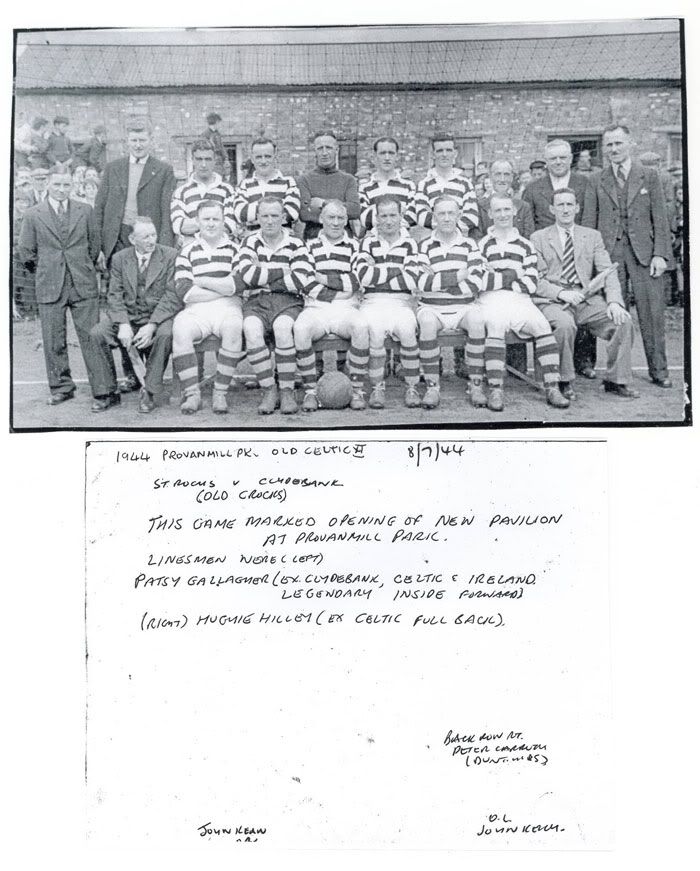 1944 PROVANMILL PK. OLD CELTIC XI 8/7/44
ST ROCHS V CLYDEBANK
(OLD CROCKS)
THIS GAME MARKED OPENING OF NEW PAVILION
AT PROVANMILL PARK.
LINESMEN WERE (LEFT)
PATSY GALLAGHER (EX. CLYDEBANK, CELTIC & IRELAND.
LEGENDARY INSIDE FORWARD)
(RIGHT) HUGHIE HILLEY (EX CELTIC FULL BACK).
BACK ROW RT.
PETER
JOHN
JOHN